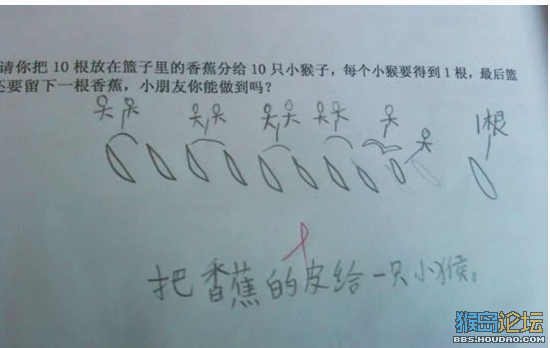 请你把 10 根放在篮子里的香蕉分给 10 只小猴子，每个小猴要得到 1 根，最后篮
还要留下一根香蕉，小朋友你能做到吗？
1根
把香蕉的皮给一只小猴。
猴岛论坛
BBS.HOUDAO.COM